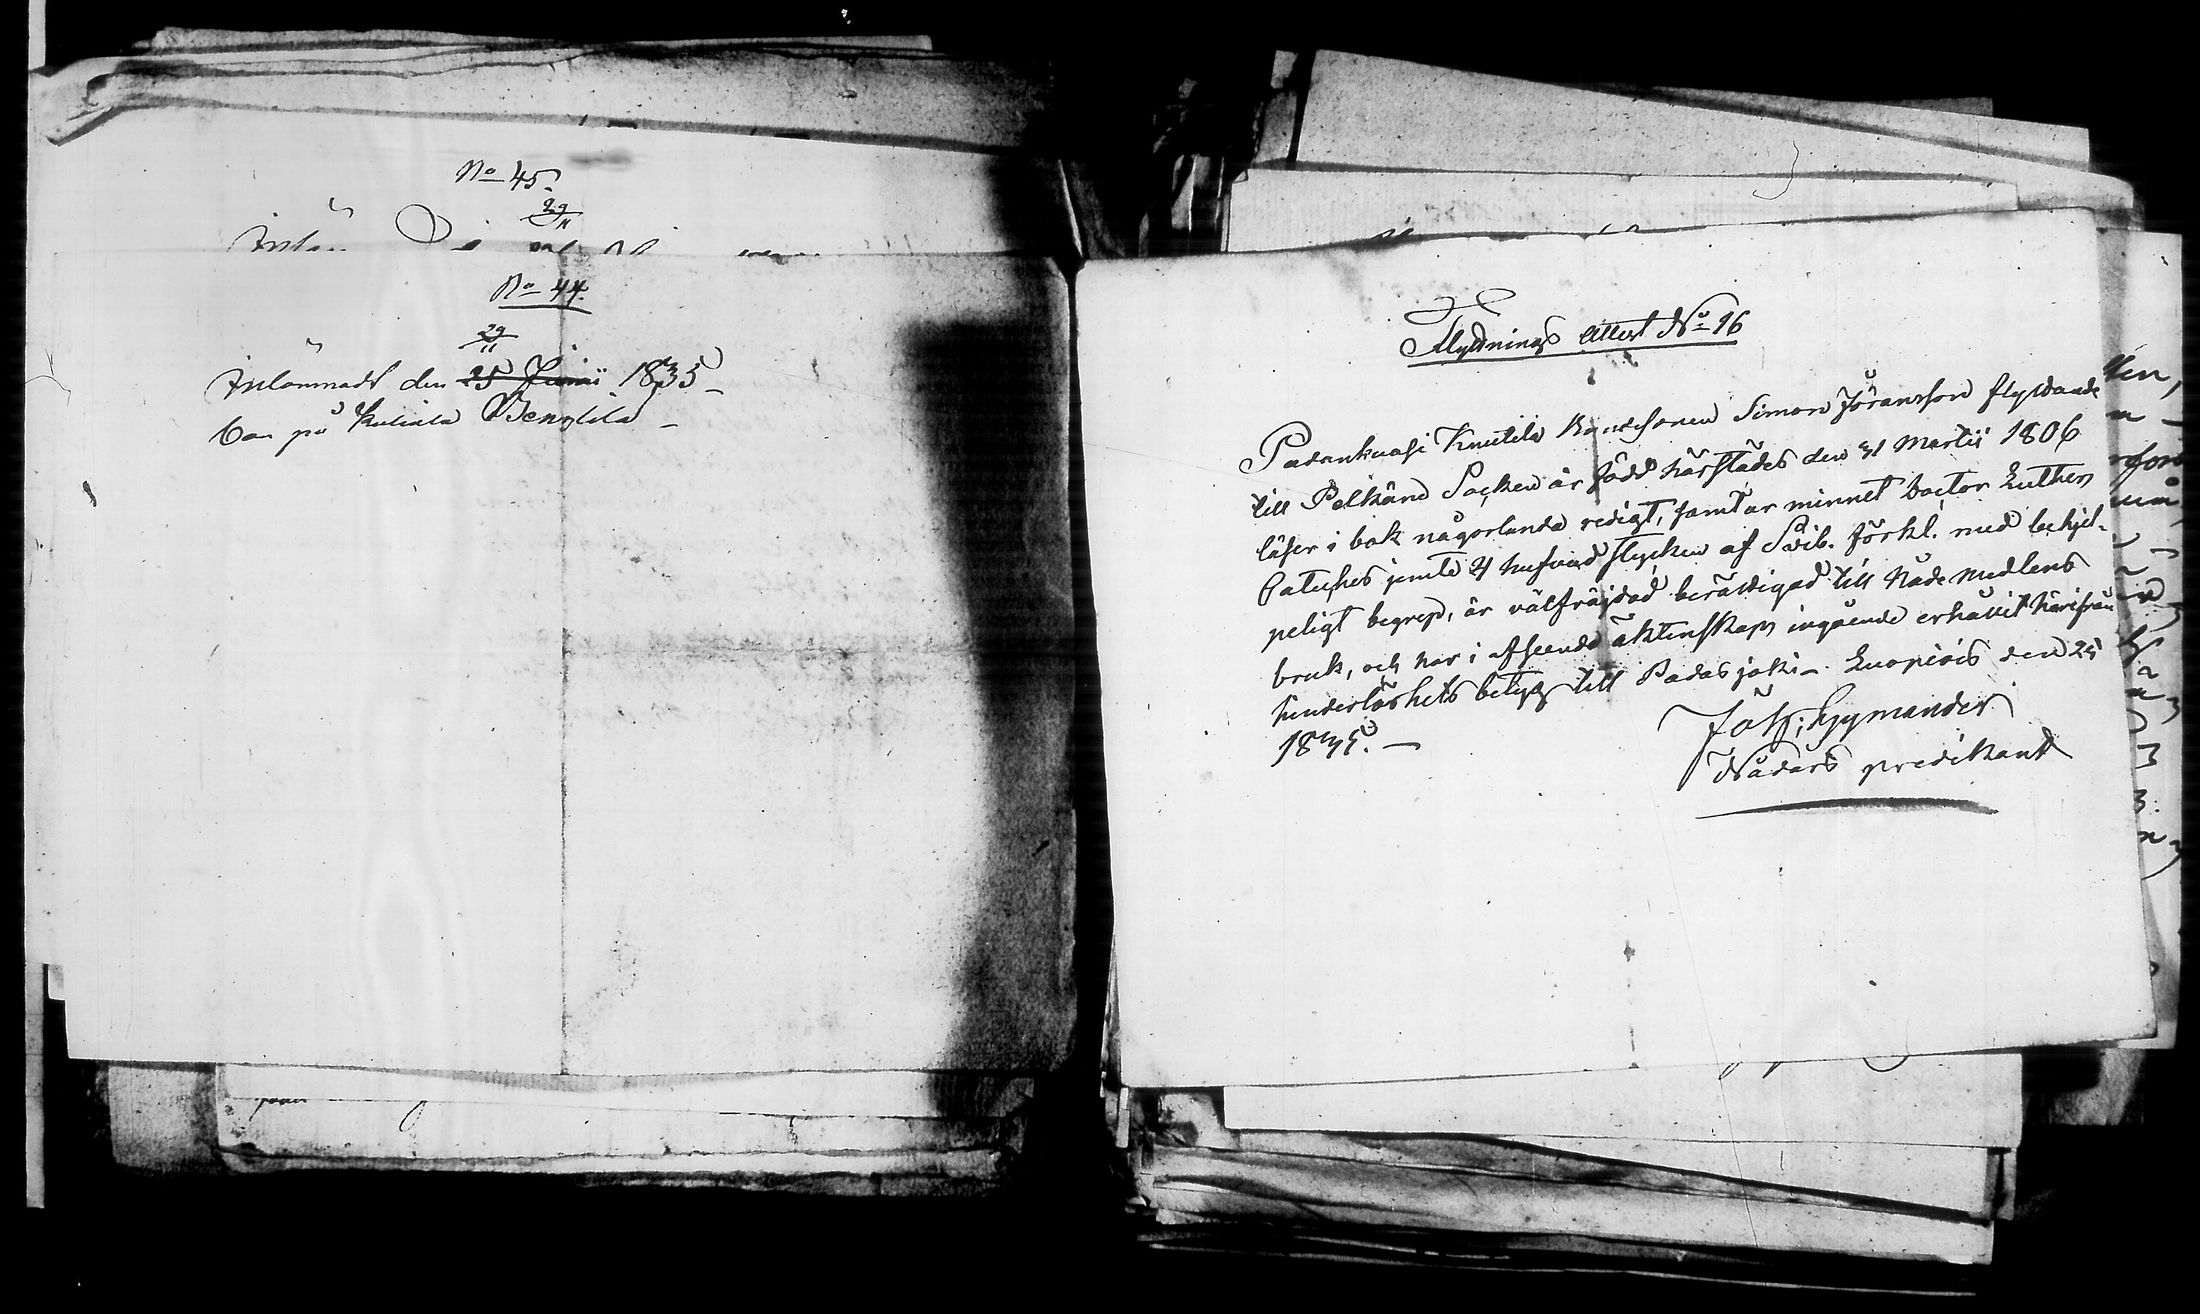 No 45.
29/11
No 44.
29/11
Inlämnadt den 25 Junii 1835 –
bor på Kuliala Bengtila –
Flyttnings Attest No 16
Padankuasi Knutila Bondesonen Simon Jöransson flyttande
till Pelkäne Socken är född härstädes den 31 Martii 1806
läser i bok någorlunda redigt, samt ur minnet Doctor Luthers
Cateches jemte 4 hufvud stycken af Svib. förkl. med behjel-
peligt begrep, är välfräjdad berättigad till Nåde medlens
bruk, och har i afseende å äktenskaps ingående erhållit härifrån
hinderlöshets betyg till Padasjoki – Kuopiois den 25
1835. –
Joh: Hjymander
Nådårs predikant